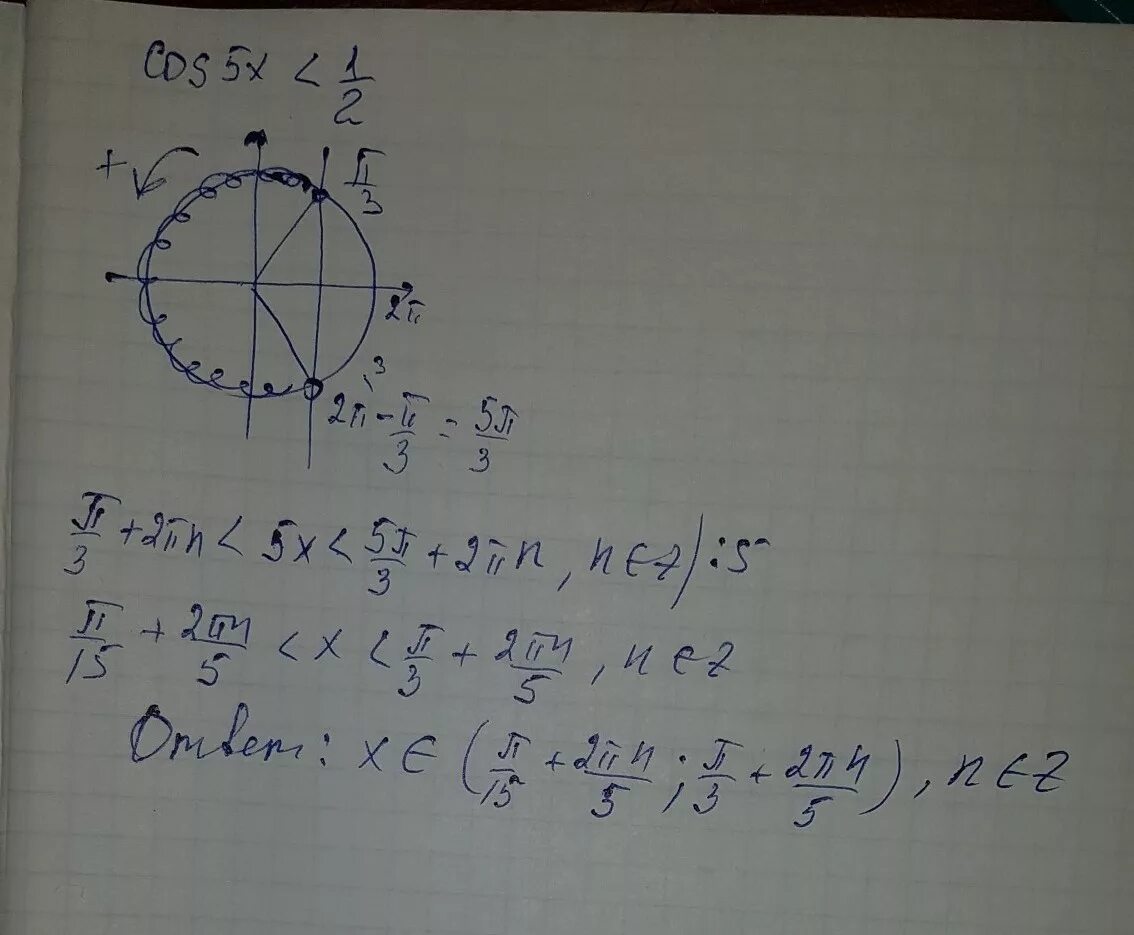 cos 5x < 1/2
+
π/3
2π
3
2π - π/3 = 5π/3
π/3 + 2πn < 5x < 5π/3 + 2πn, n∈Z | :5
π/15 + 2πn/5 < x < π/3 + 2πn/5, n∈Z
Ответ: x∈(π/15 + 2πn/5; π/3 + 2πn/5), n∈Z